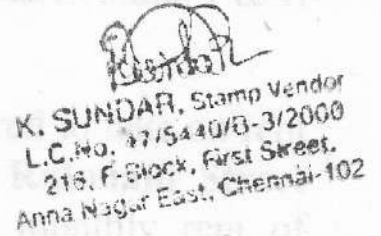 K. SUNDAR, Stamp Vendor
L.C.No. 47/5440/B-3/2000
216, F-Block, First Street,
Anna Nagar East, Chennai-102